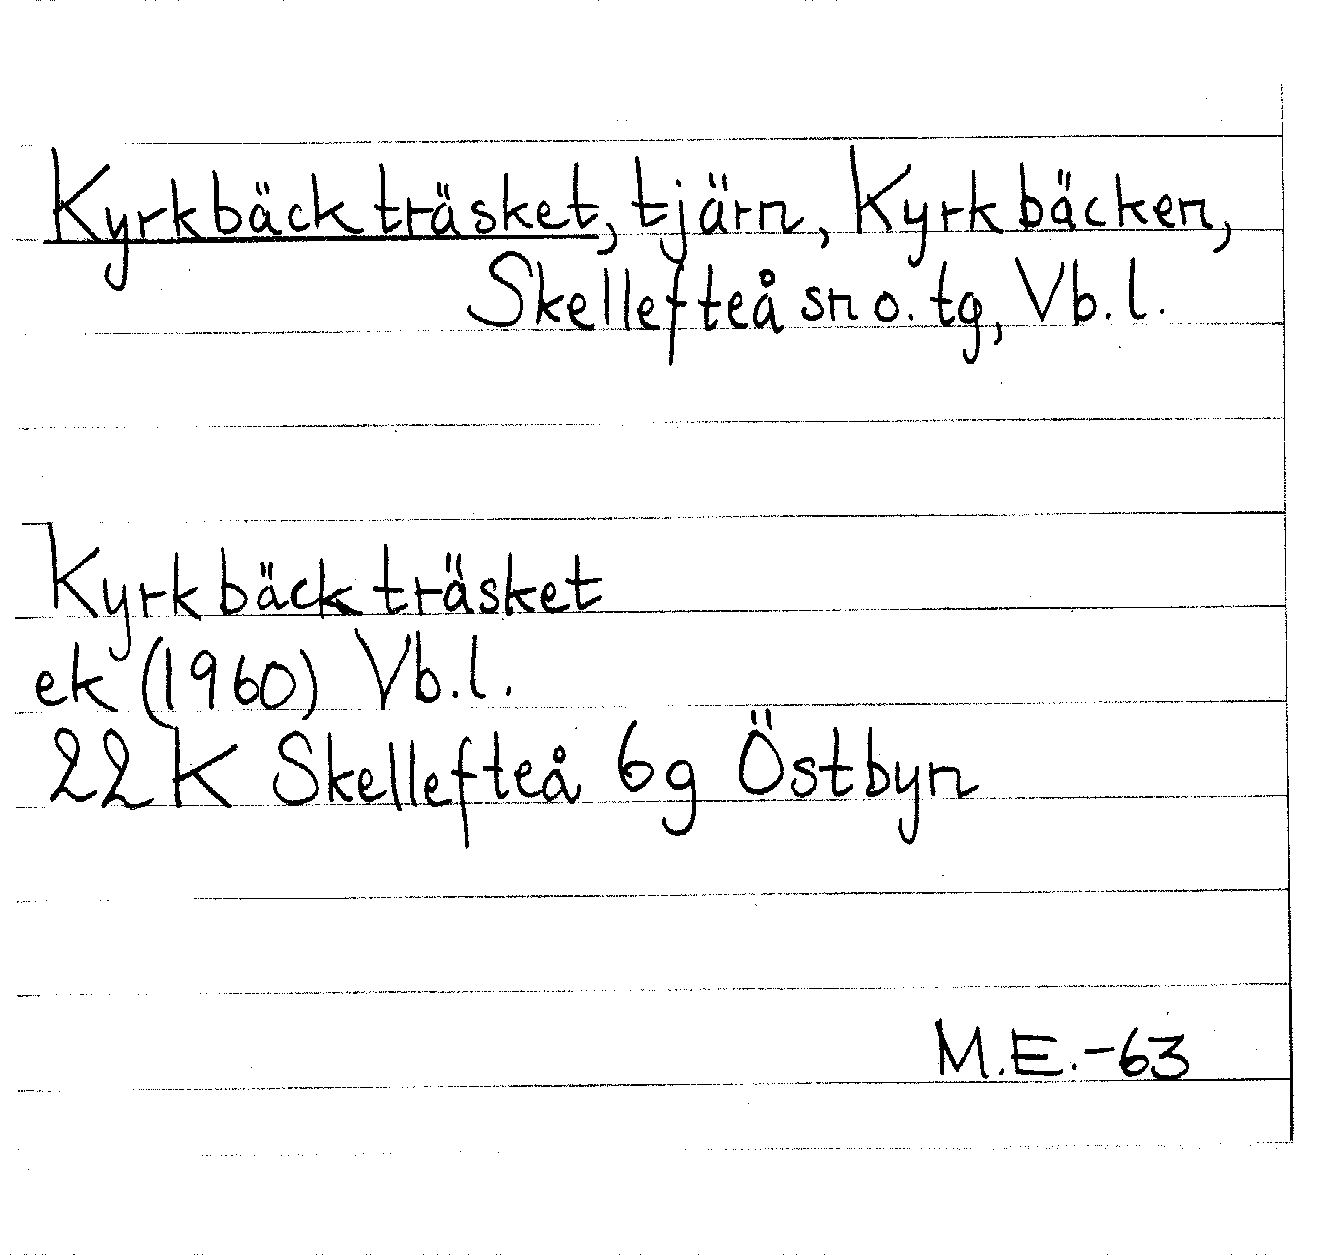 Kyrkbäckträsket, tjärn, Kyrkbäcken,
Skellefteå sn o. tg, Vb. l.
Kyrkbäckträsket
ek (1960) Vb. l.
22 K Skellefteå 6g Östbyn
M.E.-63